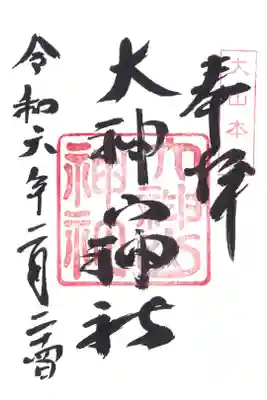 大山本
奉拝
大神山神社
令和六年二月二十四日